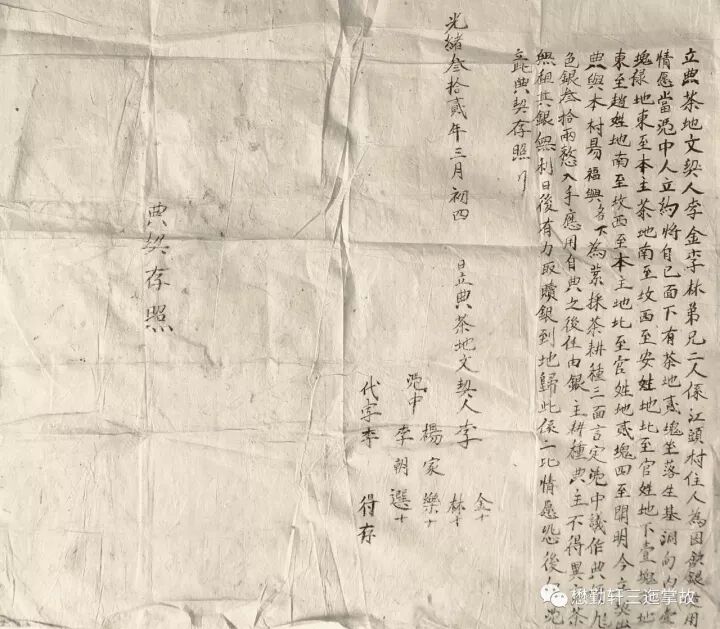 立典茶地文契人李金李林弟兄二人係江頭村住人為因缺銀用
情愿當憑中人立約將自己面下有茶地貳塊坐落生基洞向
塊樣地東至本主茶地南至坟西至安姓地北至官姓地下壹塊地
東至趙姓地南至坟西至本主地比至官姓地貳塊四至開明今立
典與本村易福興名下為業採茶耕種三面言定憑中議作典
色銀叁拾兩愁入手應用自典之後任由銀主耕種典主不得異言茶
無租其銀無利日後有力取贖銀到地歸此係二比情愿恐後
立此典契存照
光緒叁拾貳年三月初四日立典茶地文契人李
金十
林十
憑中
楊家樂十
李朝選十
代字李得存
典契存照
懋勤轩三迤掌故